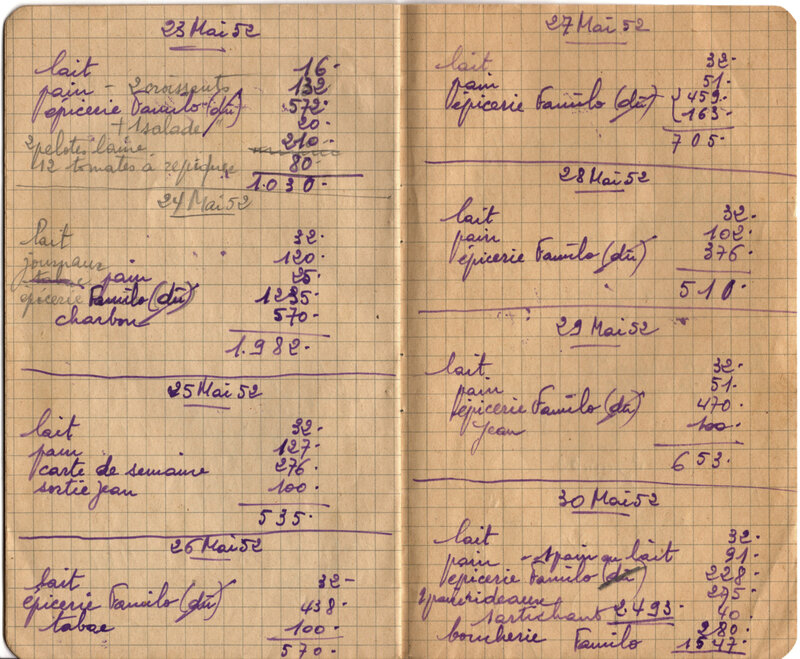 23 Mai 52
lait 16.
pain - 2 croissants 132
épicerie Familo (dû) 572.
+ 1 salade 20.
2 pelotes laine 210.
12 tomates à repiquer 80.
1.030.
24 Mai 52
lait 32.
journaux 120.
pain 25.
épicerie Familo (dû) 1235
charbon 570.
1.982.
25 Mai 52
lait 32.
pain 127.
carte de semaine 276.
sortie Jean 100.
535.
26 Mai 52
lait 32-
épicerie Familo (dû) 438.
tabac 100.
570.
27 Mai 52
lait 32.
pain 51.
épicerie Familo (dû) 459.
163.
705.
28 Mai 52
lait 32.
pain 102.
épicerie Familo (dû) 376.
510.
29 Mai 52
lait 32.
pain 51.
épicerie Familo (dû) 470.
Jean 100.
653.
30 Mai 52
lait 32.
pain - 1 pain au lait 91.
épicerie Familo (dû) 228.
rideaux 275.
1 artichaut 2.493. 40
boucherie Familo 280.
1547.